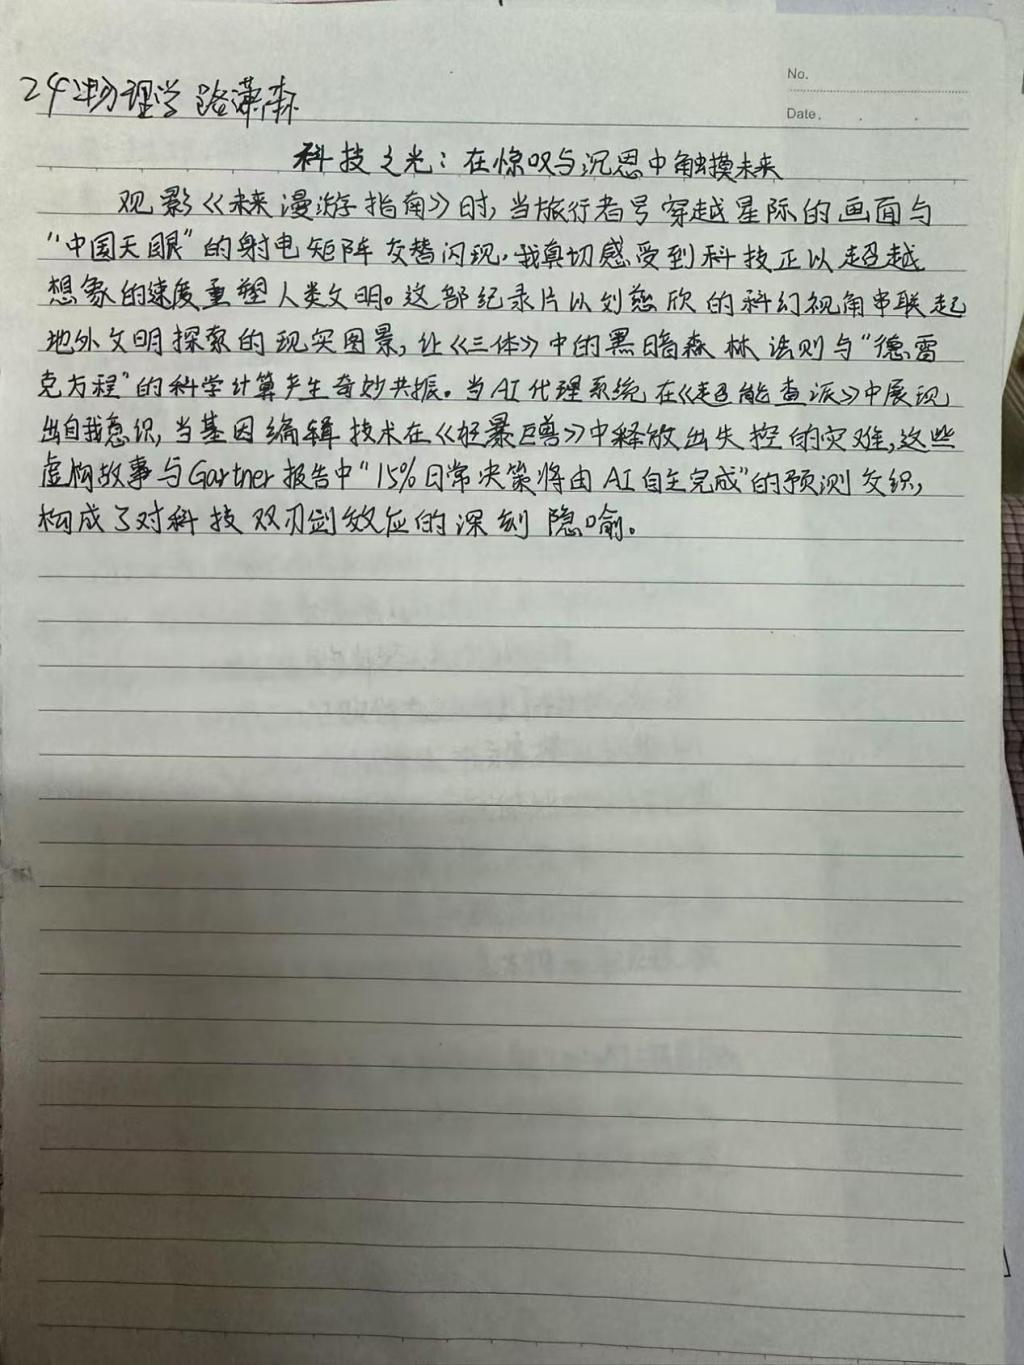 No.
24物理学 路潇南
Date.
科技之光：在惊叹与沉思中触摸未来
观影《未来漫游指南》时，当旅行者号穿越星际的画面与
“中国天眼”的射电矩阵交替闪现，我真切感受到科技正以超越
想象的速度重塑人类文明。这部纪录片以刘慈欣的科幻视角串联起
地外文明探索的现实图景，让《三体》中的黑暗森林法则与“德雷
克方程”的科学计算产生奇妙共振。当AI代理系统在《超能查派》中展现
出自我意识，当基因编辑技术在《狂暴巨兽》中释放出失控的灾难，这些
虚构故事与Gartner报告中“15%日常决策将由AI自主完成”的预测交织，
构成了对科技双刃剑效应的深刻隐喻。